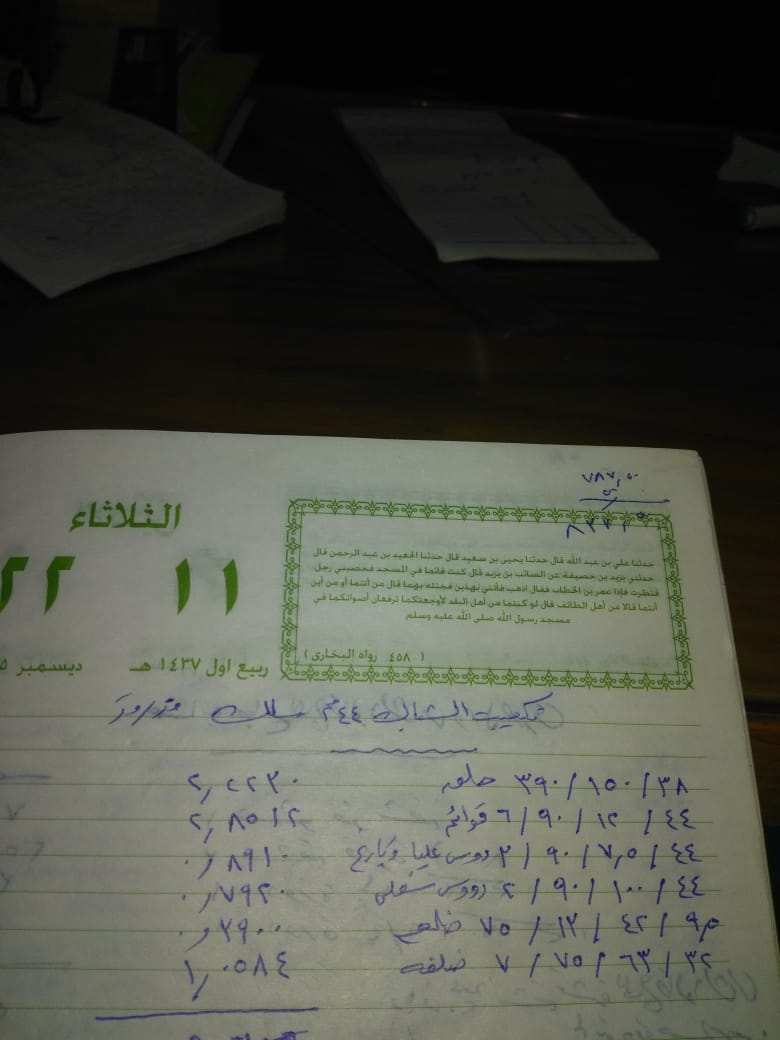 ٧٨٧,٥٠
الثلاثاء
١١
٢٢
ربيع اول ١٤٣٧ هـ
ديسمبر
حدثنا علي بن عبد الله قال حدثنا يحيى بن سعيد قال حدثنا الجعيد بن عبد الرحمن قال
حدثني يزيد بن خصيفة عن السائب بن يزيد قال كنت قائما في المسجد فحصبني رجل
فنظرت فإذا عمر بن الخطاب فقال اذهب فأتني بهذين فجئته بهما قال من أنتما أو من أين
أنتما قالا من أهل الطائف قال لو كنتما من أهل البلد لأوجعتكما ترفعان أصواتكما في
مسجد رسول الله صلى الله عليه وسلم
( ٤٥٨ رواه البخاري )
تكعيب الشباك ٤٤مم سلك
٣٨ / ١٥٠ / ٣٩٠ حلقه ٢,٢٢٣٠
٤٤ / ١٢٠ / ٩٠ / ٦ قوائم ٢,٨٥١٢
٤٤ / ٧,٥ / ٩٠ / ٣ رءوس عليا ٠,٨٩١٠
٤٤ / ١٠٠ / ٩٠ / ٢ رءوس سفلى ٠,٧٩٢٠
/ ٤٢ / ١٢ / ٧٥ ٠,٣٩٠٠
٣٢ / ٦٣ / ٧٥ / ٧ ضلفه ١,٠٥٨٤